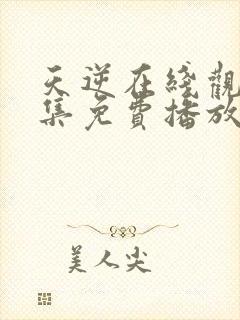 天逆在綫觀
集免費播放
美人尖